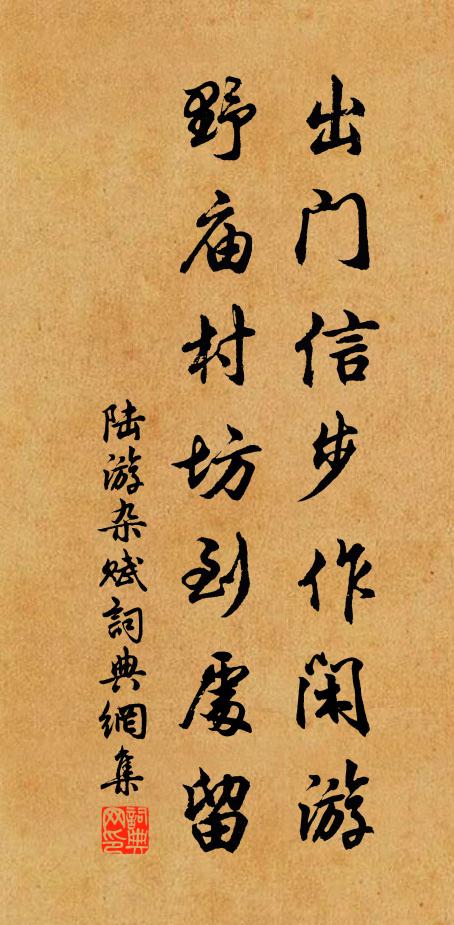 出门信步作闲游
野庙村坊到處留
陆游杂赋詞典網集
詞典网印